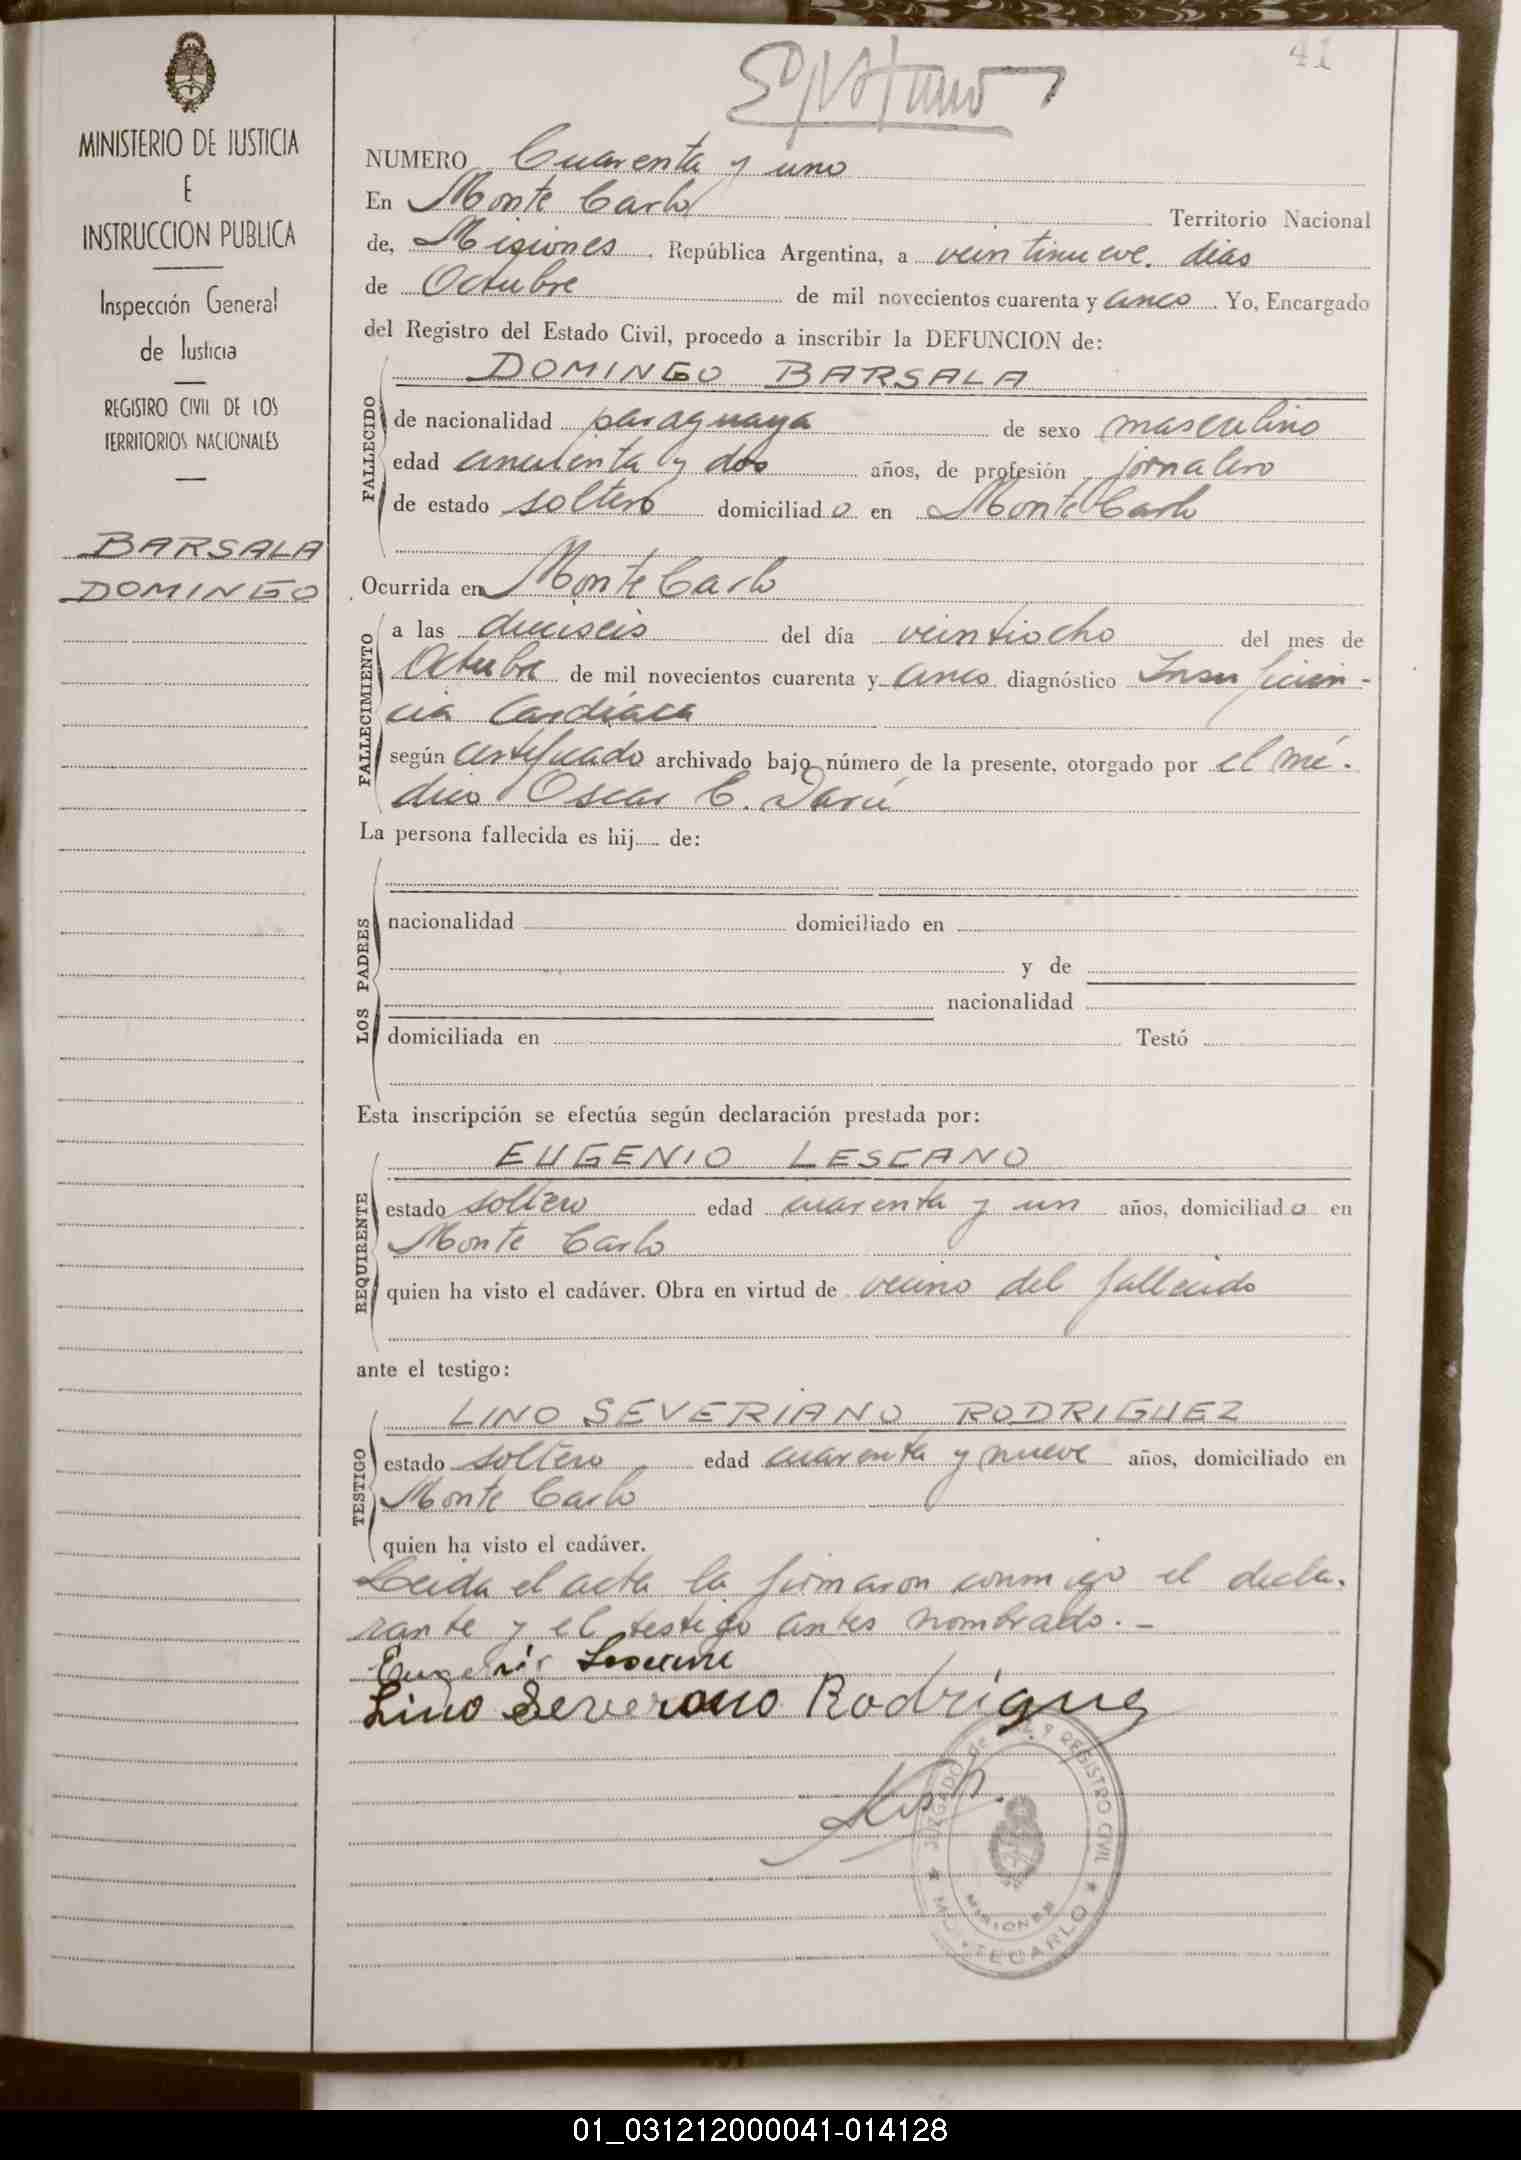 41
MINISTERIO DE JUSTICIA
E
INSTRUCCION PUBLICA
Inspección General
de Justicia
REGISTRO CIVIL DE LOS
TERRITORIOS NACIONALES
BARSALA
DOMINGO
NUMERO Cuarenta y uno
En Monte Carlo Territorio Nacional
de, Misiones, República Argentina, a veintinueve. dias
de Octubre de mil novecientos cuarenta y cinco. Yo, Encargado
del Registro del Estado Civil, procedo a inscribir la DEFUNCION de:
DOMINGO BARSALA
FALLECIDO
de nacionalidad paraguaya de sexo masculino
edad cincuenta y dos años, de profesión jornalero
de estado soltero domiciliado en Monte Carlo
Ocurrida en Monte Carlo
FALLECIMIENTO
a las dieciseis del día veintiocho del mes de
Octubre de mil novecientos cuarenta y cinco diagnóstico Insuficien-
cia Cardíaca
según certificado archivado bajo número de la presente, otorgado por el mé-
dico Oscar C. Darú
La persona fallecida es hij..... de:
LOS PADRES
nacionalidad domiciliado en
y de
nacionalidad
domiciliada en Testó
Esta inscripción se efectúa según declaración prestada por:
EUGENIO LESCANO
REQUIRENTE
estado soltero edad cuarenta y un años, domiciliado en
Monte Carlo
quien ha visto el cadáver. Obra en virtud de vecino del fallecido
ante el testigo:
LINO SEVERIANO RODRIGUEZ
TESTIGO
estado soltero edad cuarenta y nueve años, domiciliado en
Monte Carlo
quien ha visto el cadáver.
Leida el acta la firmaron conmigo el decla-
rante y el testigo antes nombrado.-
Lino Severano Rodrigue
JUZGADO de Y REGISTRO CIVIL
MISIONES
MONTECARLO
01_031212000041-014128